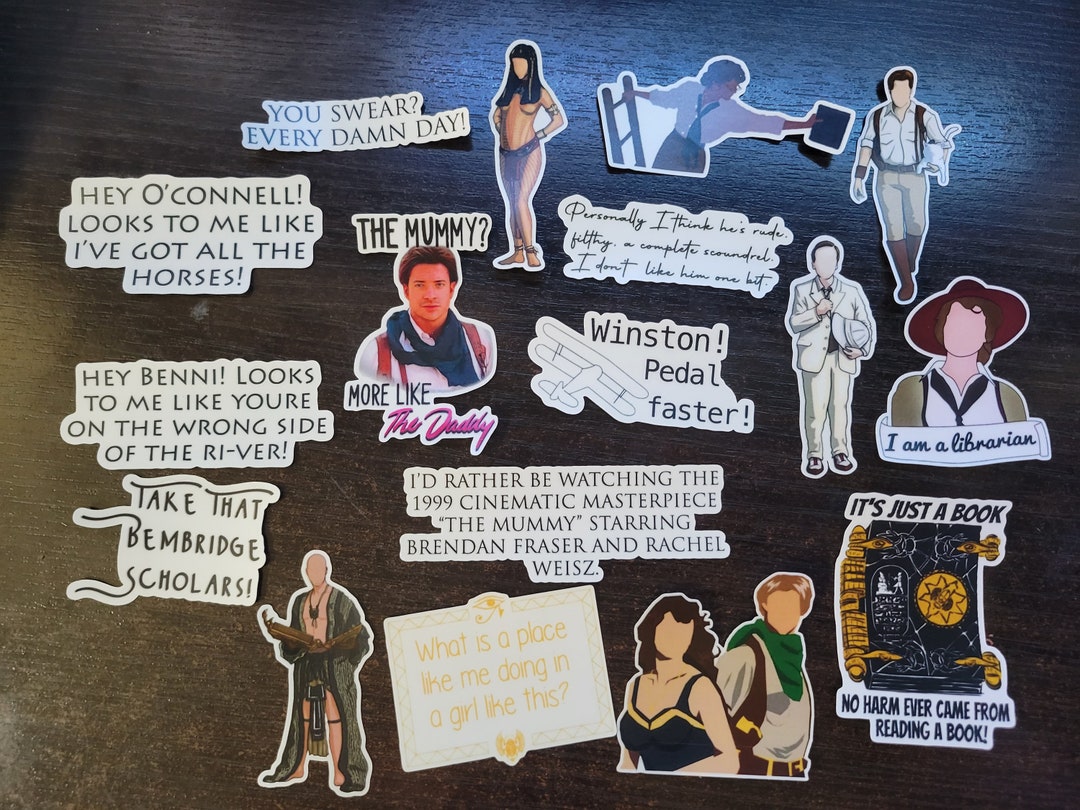 YOU SWEAR?
EVERY DAMN DAY!
HEY O'CONNELL!
LOOKS TO ME LIKE
I'VE GOT ALL THE
HORSES!
THE MUMMY?
MORE LIKE
The Daddy
Personally I think he's rude,
filthy, a complete scoundrel.
I don't like him one bit.
Winston!
Pedal
faster!
I am a librarian
HEY BENNI! LOOKS
TO ME LIKE YOURE
ON THE WRONG SIDE
OF THE RI-VER!
TAKE THAT
BEMBRIDGE
SCHOLARS!
I'D RATHER BE WATCHING THE
1999 CINEMATIC MASTERPIECE
"THE MUMMY" STARRING
BRENDAN FRASER AND RACHEL
WEISZ.
What is a place
like me doing in
a girl like this?
IT'S JUST A BOOK
NO HARM EVER CAME FROM
READING A BOOK!